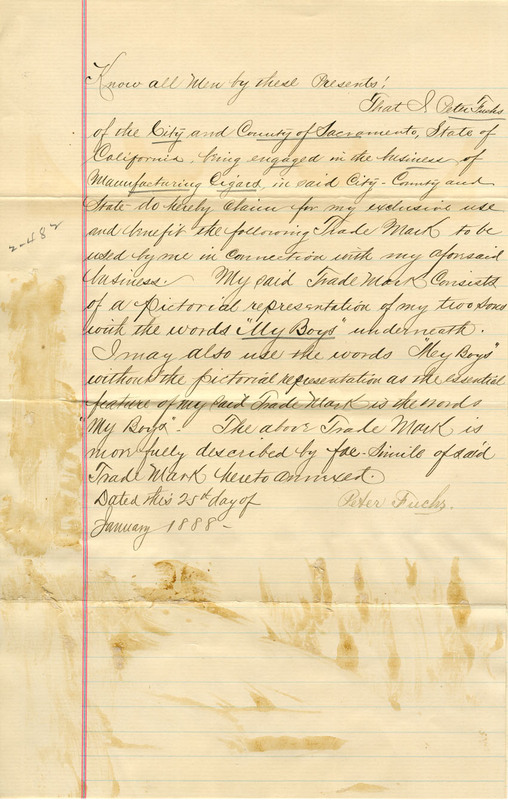 Know all Men by these Presents!
That I, Peter Fuchs
of the City and County of Sacramento, State of
California, being engaged in the business of
Manufacturing Cigars, in said City - County and
State - do hereby claim for my exclusive use
and benefit the following Trade Mark to be
used by me in connection with my aforesaid
business. My said Trade Mark consists
of a pictorial representation of my two sons
with the words "My Boys" underneath.
I may also use the words "My Boys"
without the pictorial representation as the essential
feature of my said Trade Mark is the words
"My Boys". The above Trade Mark is
more fully described by fac-simile of said
Trade Mark hereto annexed.
Dated this 25th day of
Peter Fuchs.
January 1888-
2-482